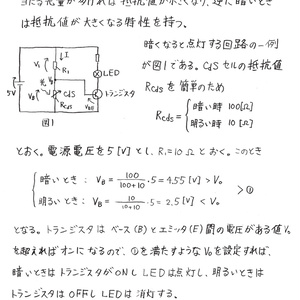 当たる光量が多ければ抵抗値が小さくなり、逆に暗いとき
は抵抗値が大きくなる特性を持つ。
暗くなると点灯する回路の一例
が図1である。CdSセルの抵抗値
Rcdsを簡単のため
Rcds = { 暗い時 100[Ω]
明るい時 10[Ω]
V₁ R₁ I
LED
トランジスタ
5V
CdS
Rcds
VB
図1
とおく。電源電圧を5[V]とし、R₁=10Ωとおく。このとき
{ 暗いとき: VB = 100/(100+10)・5 = 4.55[V] > V₀
明るいとき: VB = 10/(10+10)・5 = 2.5[V] < V₀
>①
となる。トランジスタはベース(B)とエミッタ(E)間の電圧がある値V₀
を超えればオンになるので、①を満たすようなV₀を設定すれば、
暗いときはトランジスタがONしLEDは点灯し、明るいときは
トランジスタはOFFしLEDは消灯する。